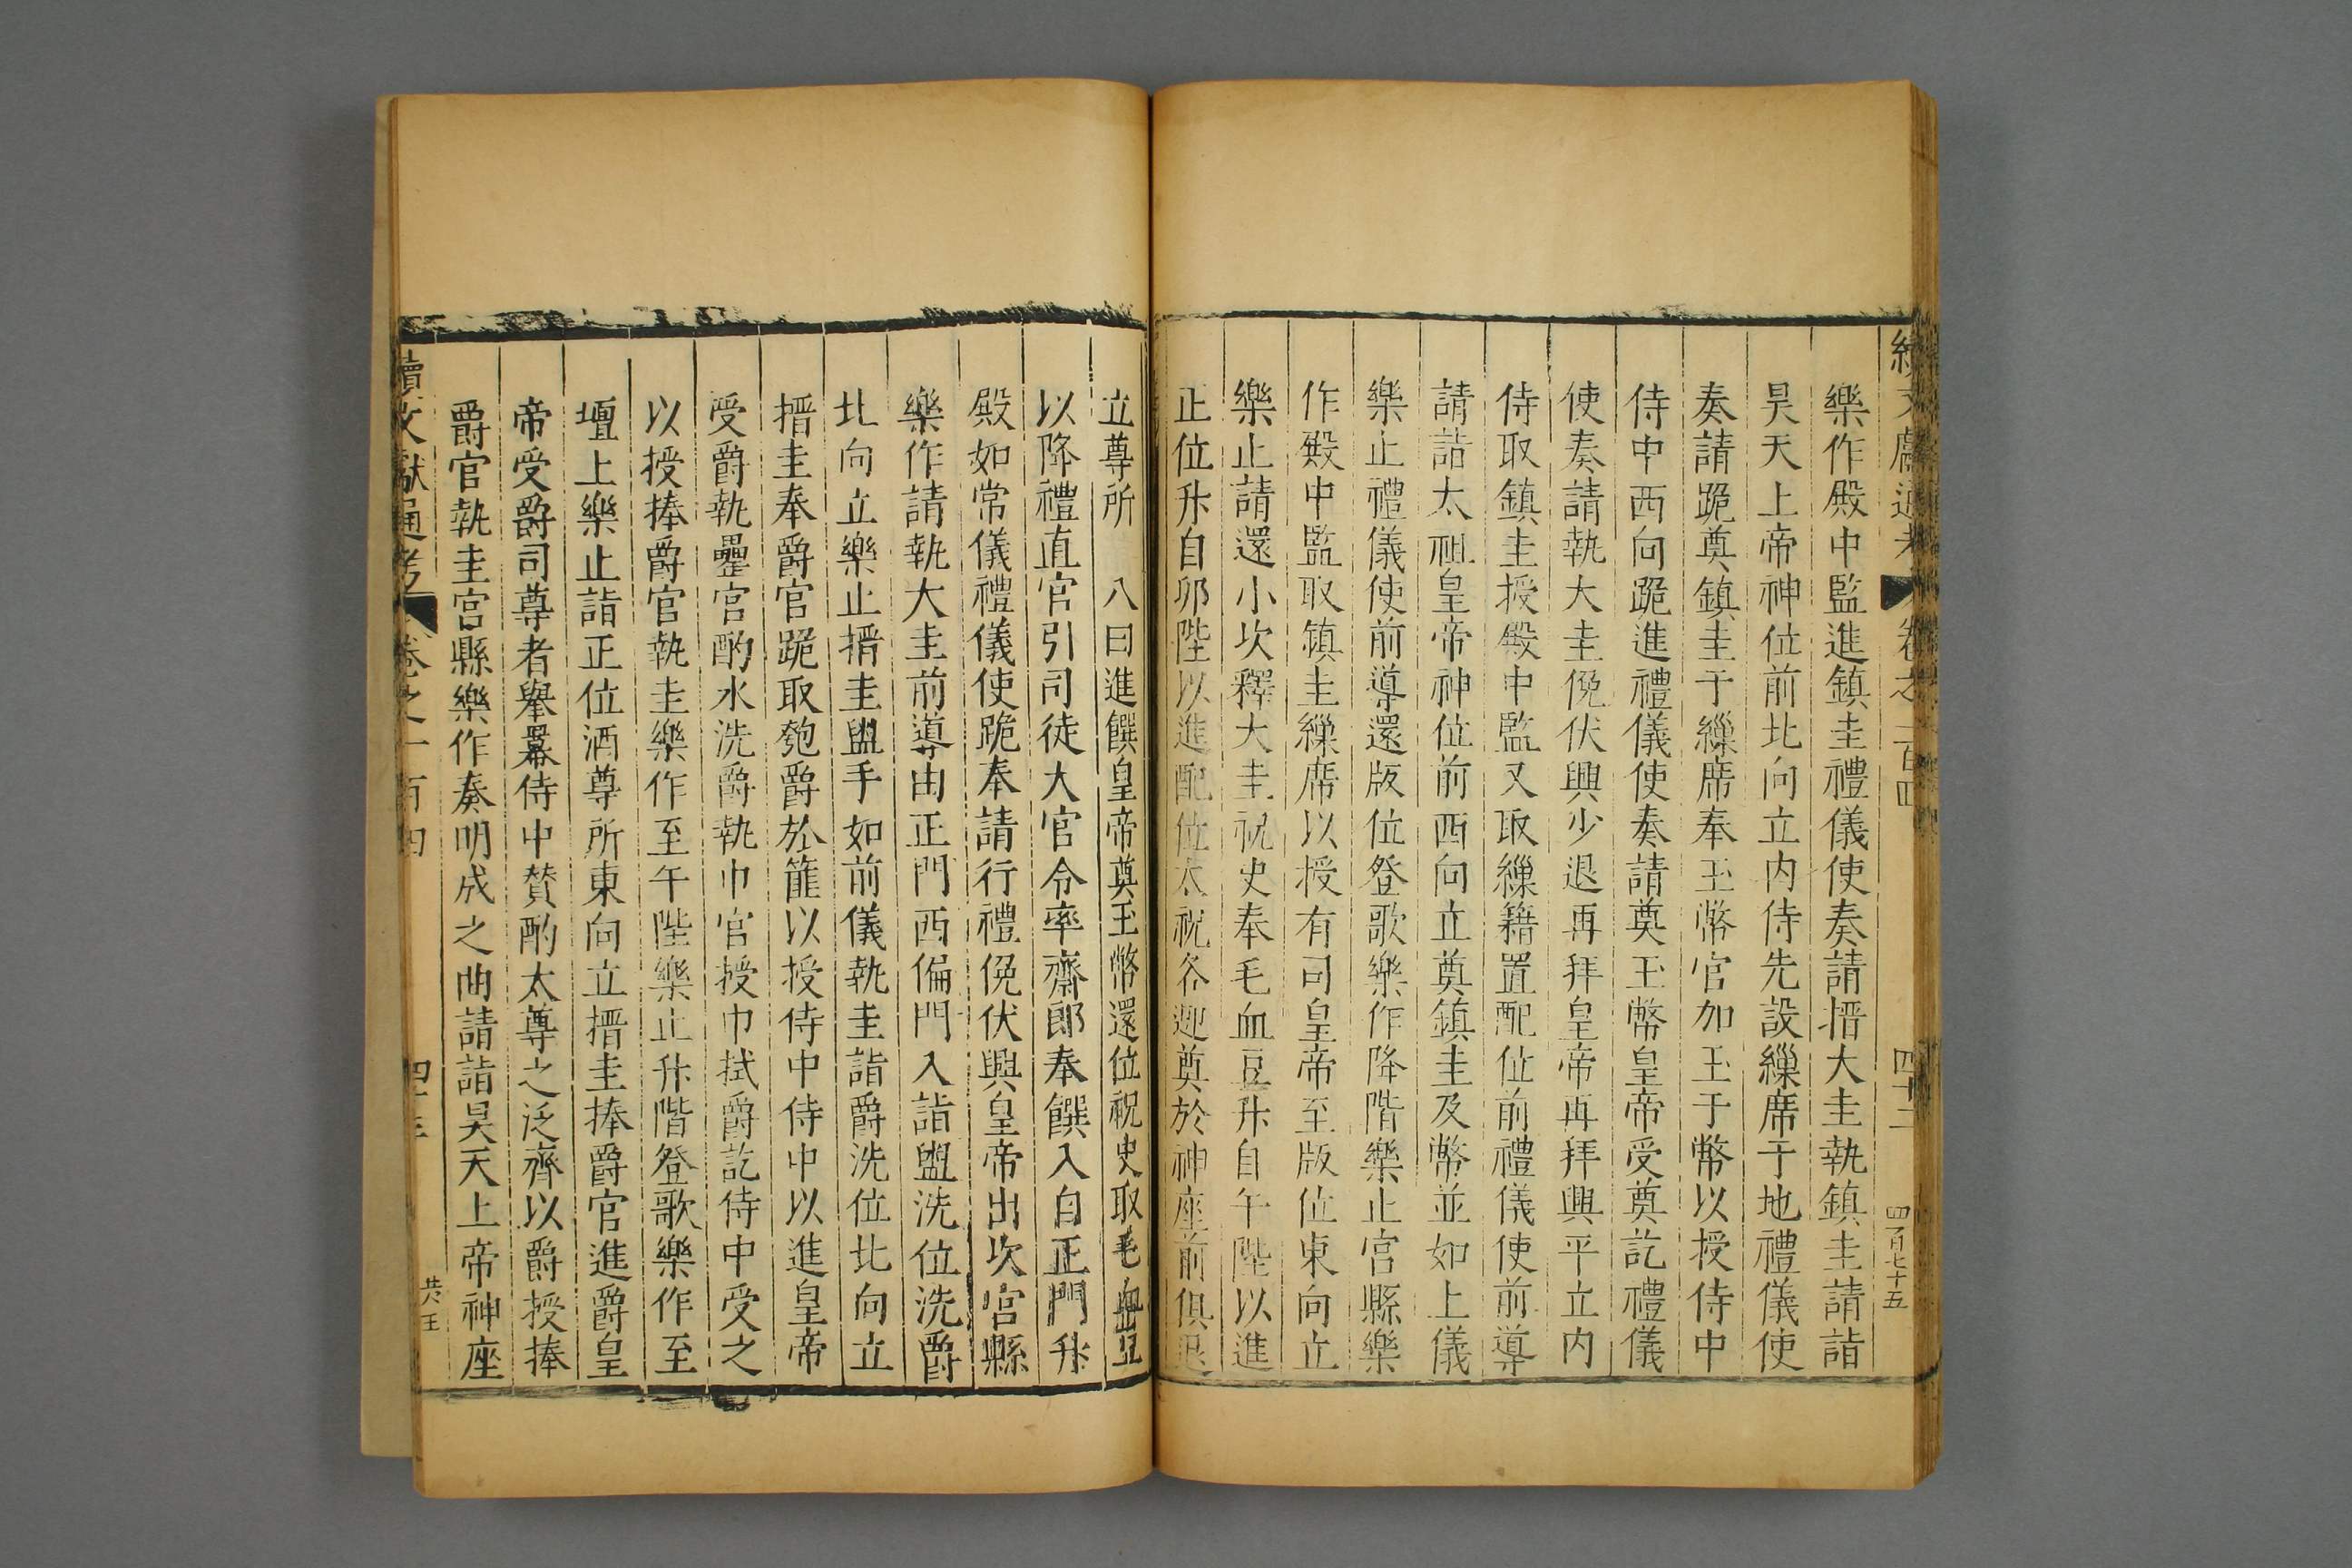 續文獻通考 卷之一百四 四十二 四百七十五
樂作殿中監進鎮圭禮儀使奏請搢大圭執鎮圭請詣
昊天上帝神位前北向立内侍先設繅席于地禮儀使
奏請跪奠鎮圭于繅席奉玉幣官加玉于幣以授侍中
侍中西向跪進禮儀使奏請奠玉幣皇帝受奠訖禮儀
使奏請執大圭俛伏興少退再拜皇帝再拜興平立内
侍取鎮圭授殿中監又取繅籍置配位前禮儀使前導
請詣太祖皇帝神位前西向立奠鎮圭及幣並如上儀
樂止禮儀使前導還版位登歌樂作降階樂止宮縣樂
作殿中監取鎮圭繅席以授有司皇帝至版位東向立
樂止請還小次釋大圭祝史奉毛血豆升自午陛以進
正位升自卯陛以進配位太祝各迎奠於神座前俱退
立尊所 八曰進饌皇帝奠玉幣還位祝史取毛血豆
以降禮直官引司徒大官令率齋郎奉饌入自正門升
殿如常儀禮儀使跪奉請行禮俛伏興皇帝出次宮縣
樂作請執大圭前導由正門西偏門入詣盥洗位洗爵
北向立樂止搢圭盥手如前儀執圭詣爵洗位北向立
搢圭奉爵官跪取匏爵於篚以授侍中侍中以進皇帝
受爵執罍官酌水洗爵執巾官授巾拭爵訖侍中受之
以授捧爵官執圭樂作至午陛樂止升階登歌樂作至
壇上樂止詣正位酒尊所東向立搢圭捧爵官進爵皇
帝受爵司尊者舉羃侍中贊酌太尊之泛齊以爵授捧
爵官執圭宮縣樂作奏明成之曲請詣昊天上帝神座
續文獻通考 卷之一百四